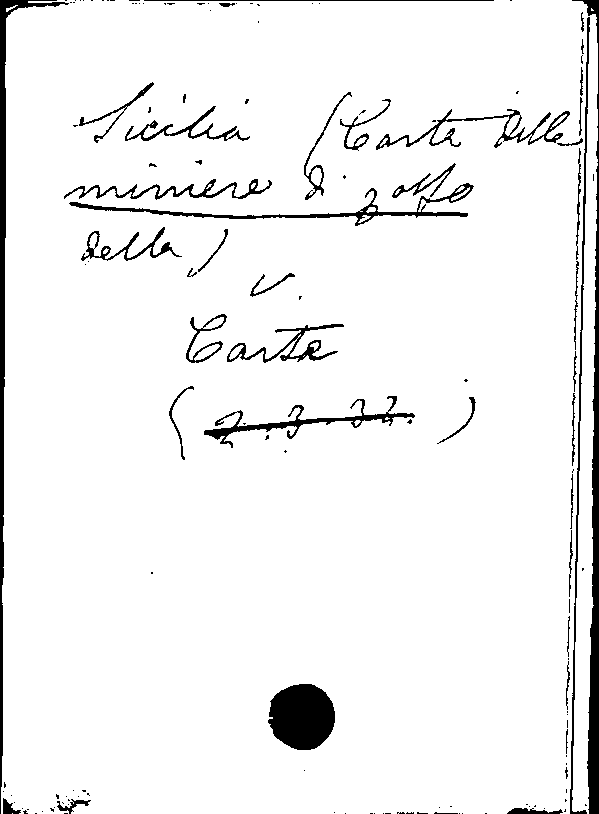 Sicilia (Carta delle
miniere di zolfo
della)
V.
Carta
(2.3.32.)